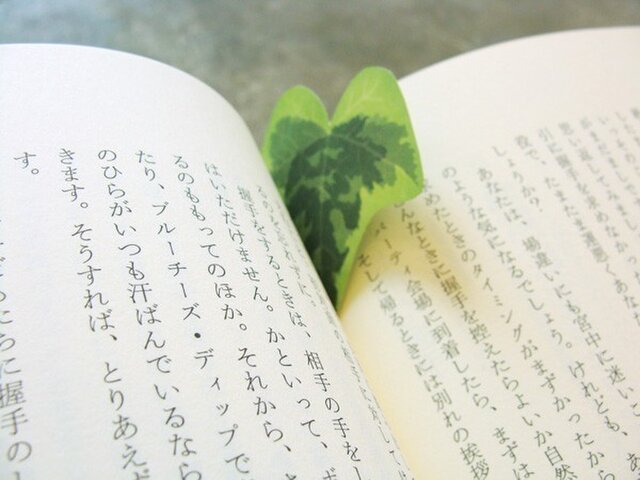 いがまだまだ
思い返してみま
引に握手を求めなかっ
役で、たまたま運悪くあな
しょうか?
あなたは、場違いにも宮中に迷い
のような気になるでしょう。けれども、あ
求めたときのタイミングがまずかったから
んなときに握手を控えたらよいか自然
パーティ会場に到着したら、まずは
そして帰るときには別れの挨拶
握手をするときは、相手の手をし
はいただけません。かといって、ギ
るのももってのほか。それから、さ
たり、ブルーチーズ・ディップで
のひらがいつも汗ばんでいるなら
きます。そうすれば、とりあえず
す。
に握手の